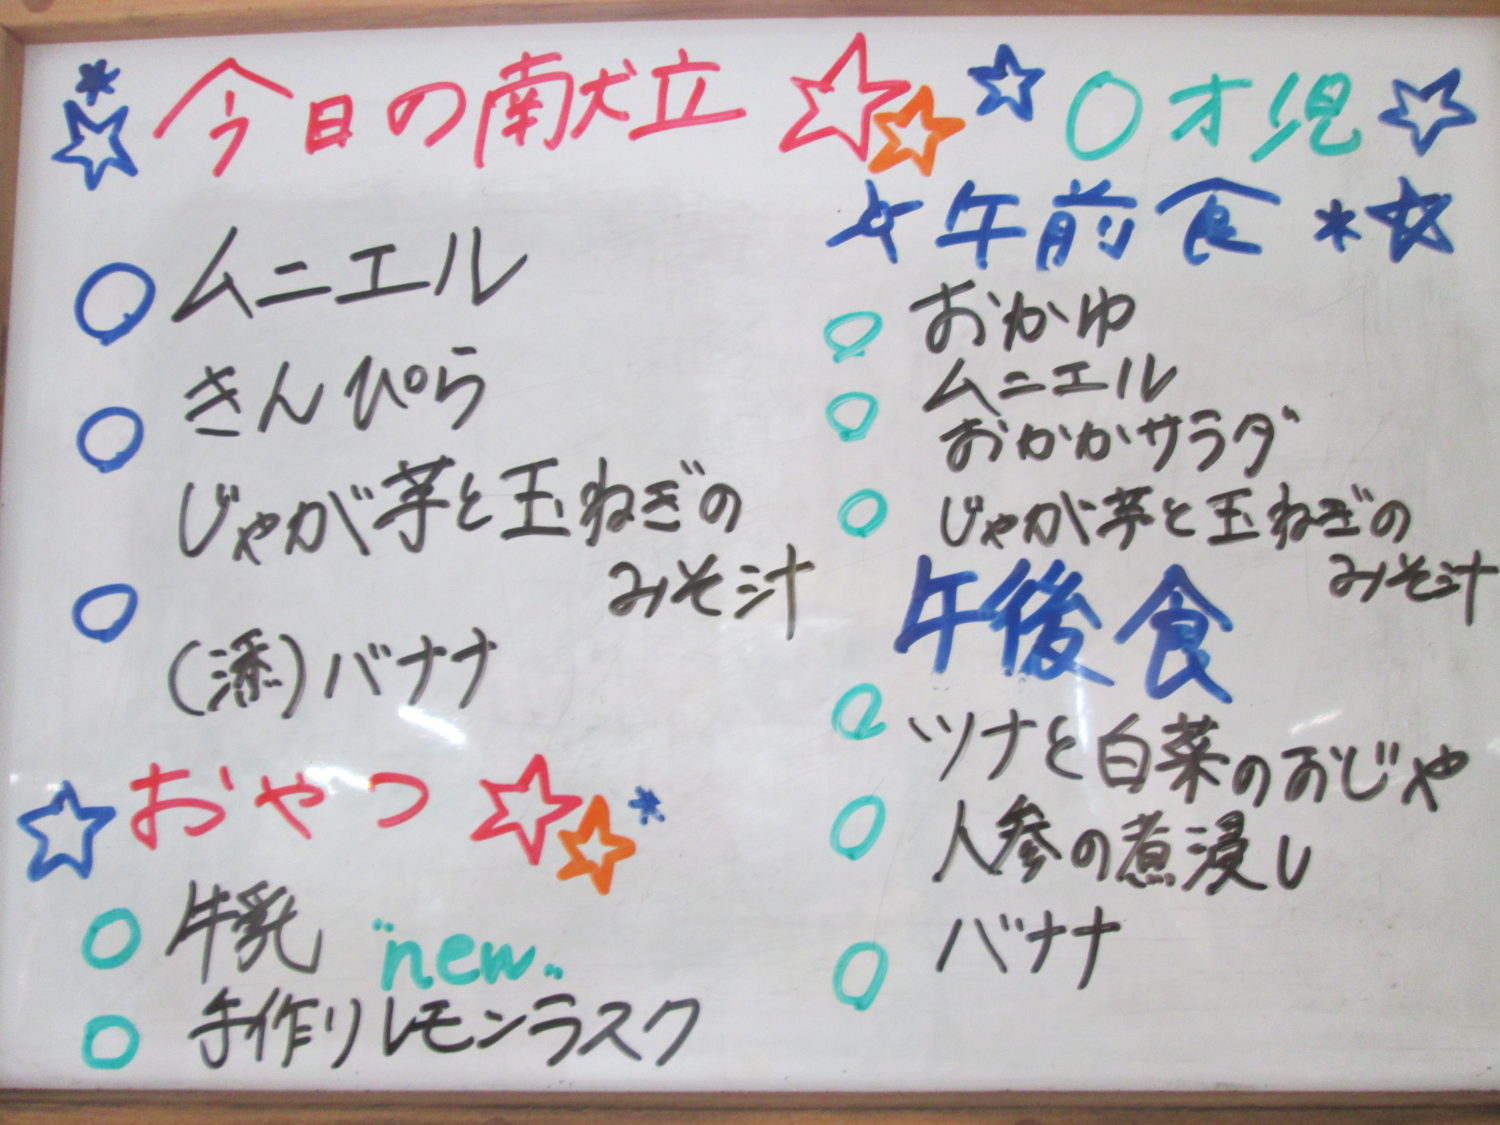 今日の献立
ムニエル
きんぴら
じゃが芋と玉ねぎの
みそ汁
(添)バナナ
おやつ
牛乳
"new"
手作りレモンラスク
0才児
午前食
おかゆ
ムニエル
おかかサラダ
じゃが芋と玉ねぎの
みそ汁
午後食
ツナと白菜のおじや
人参の煮浸し
バナナ